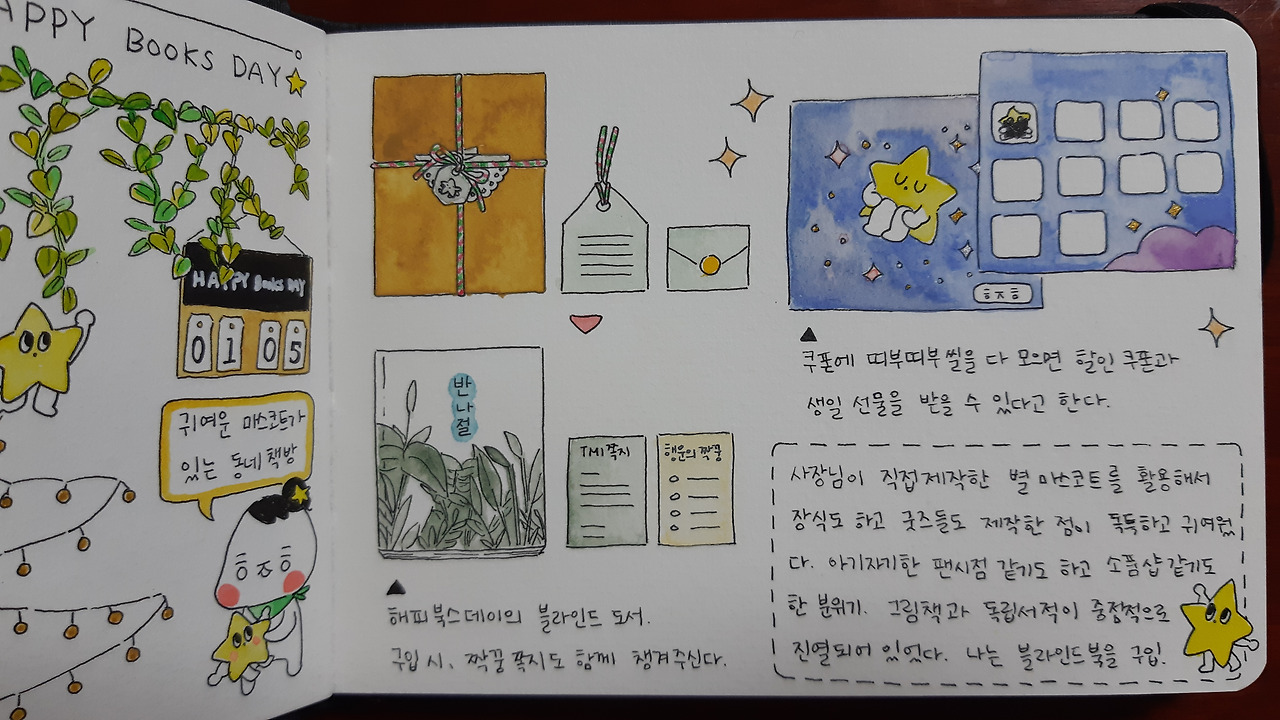 APPY BOOKS DAY
HAPPY Books DAY
01 05
귀여운 마스코트가
있는 동네책방
ㅎㅈㅎ
반나절
TMI 쪽지
행운의 짝꿍
해피북스데이의 블라인드 도서.
구입 시, 짝꿍 쪽지도 함께 챙겨주신다.
ㅎㅈㅎ
쿠폰에 띠부띠부씰을 다 모으면 할인쿠폰과
생일 선물을 받을 수 있다고 한다.
사장님이 직접 제작한 별 마스코트를 활용해서
장식도 하고 굿즈들도 제작한 점이 독특하고 귀여웠
다. 아기자기한 팬시점 같기도 하고 소품샵 같기도
한 분위기. 그림책과 독립서적이 중점적으로
진열되어 있었다. 나는 블라인드북을 구입!